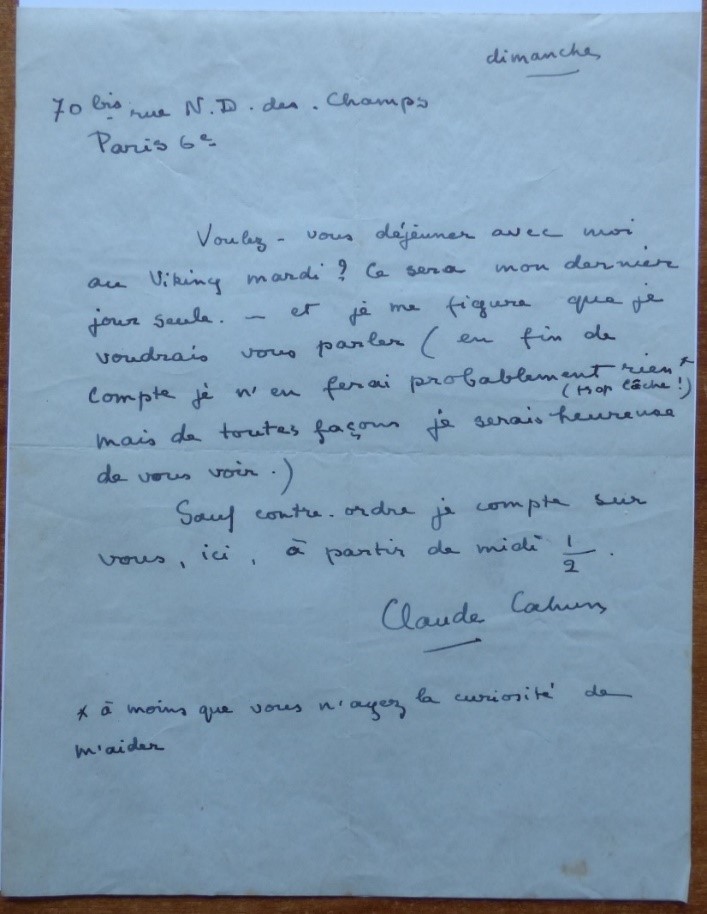 dimanche
70 bis rue N.D. des. Champs
Paris 6e
Voulez-vous déjeuner avec moi
au Viking mardi? Ce sera mon dernier
jour seule. — et je me figure que je
voudrais vous parler (en fin de
compte je n'en ferai probablement rien*
(trop lâche!)
mais de toutes façons je serais heureuse
de vous voir.)
Sauf contre-ordre je compte sur
vous, ici, à partir de midi 1/2.
Claude Cahun
* à moins que vous n'ayez la curiosité de
m'aider